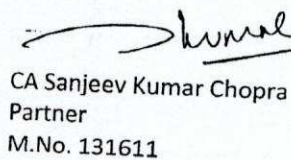 CA Sanjeev Kumar Chopra
Partner
M.No. 131611